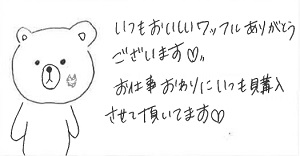 いつもおいしいワッフルありがとう
ございます♡〃
お仕事おわりにいつも購入
させて頂いてます♡